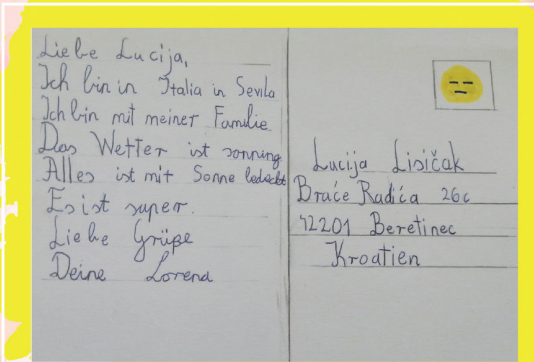 Liebe Lucija,
Ich bin in Italia in Sevila
Ich bin mit meiner Familie
Das Wetter ist sonning
Alles ist mit Sonne bedeckt
Es ist super.
Liebe Grüße
Deine Lorena
Lucija Lisičak
Braće Radića 26c
42201 Beretinec
Kroatien